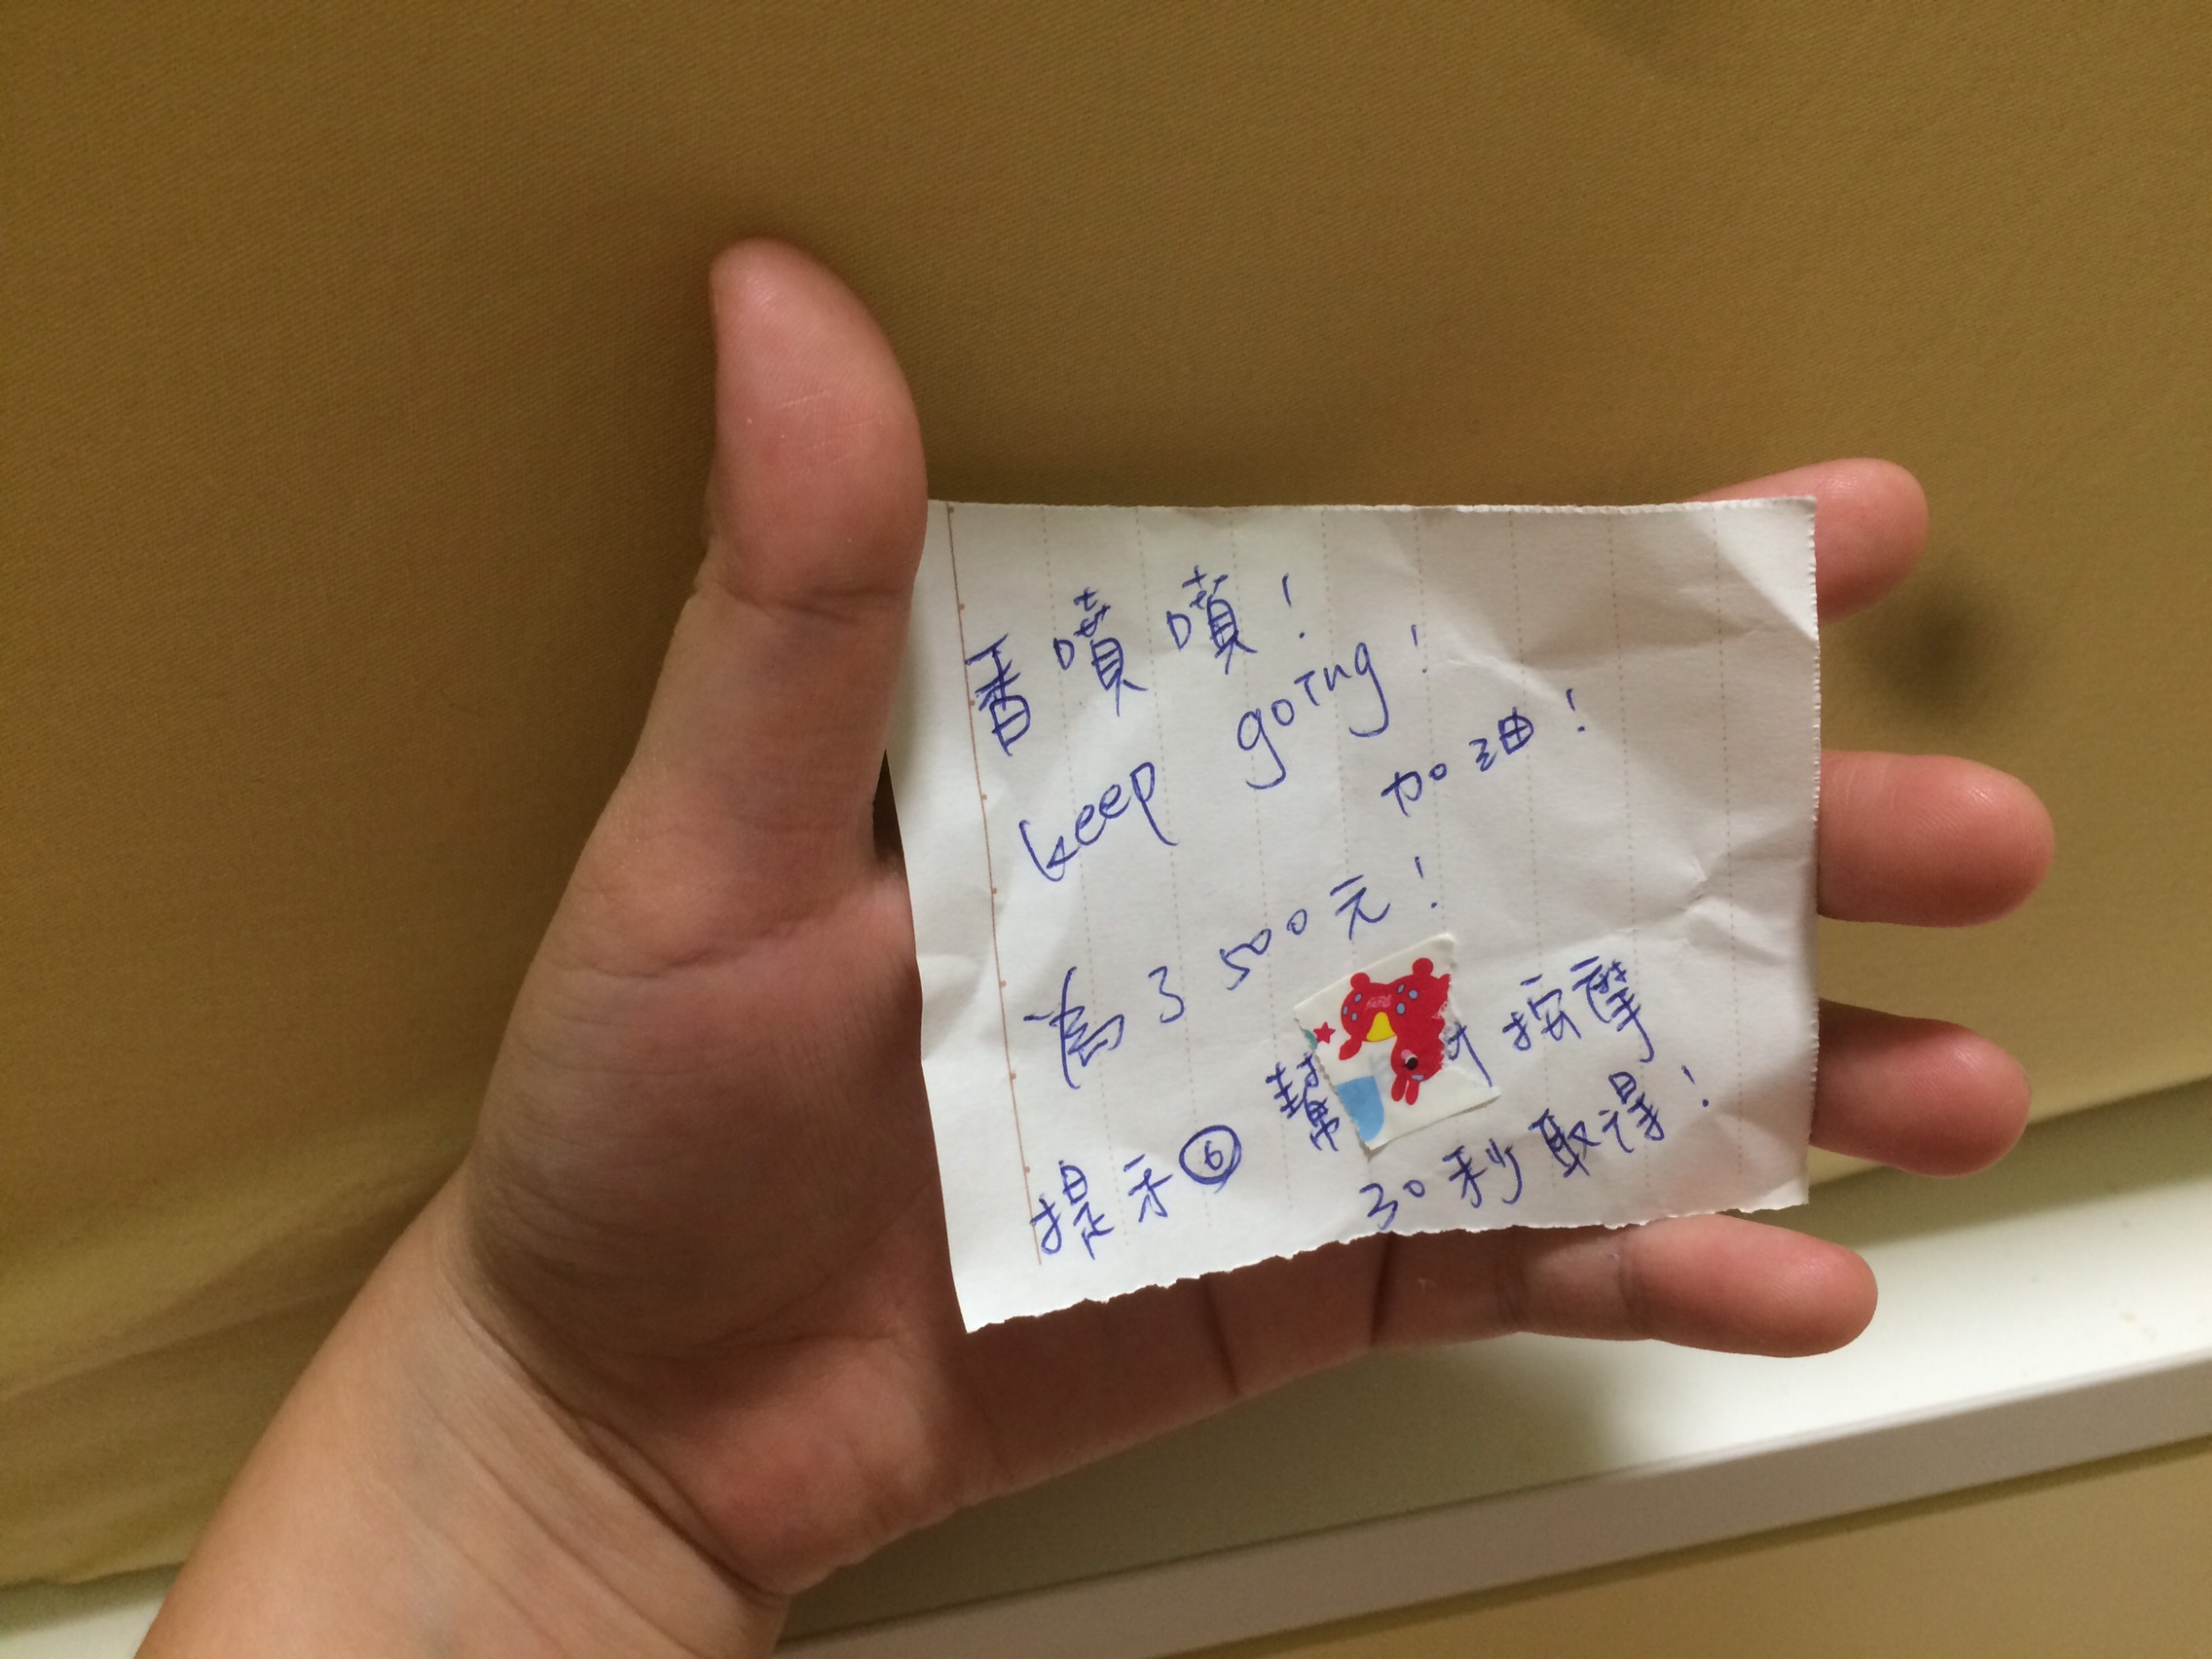 香噴噴！
keep going！
加油！
為了500元！
提示⑥ 幫 按摩
30秒取得！